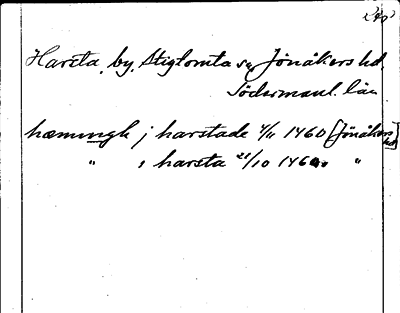 Harsta, by, Stigtomta sn Jönåkers hd,
Södermanl. län
hæmingh j harstade 4/11 1460 [Jönåkers hd]
" j harsta 21/10 "